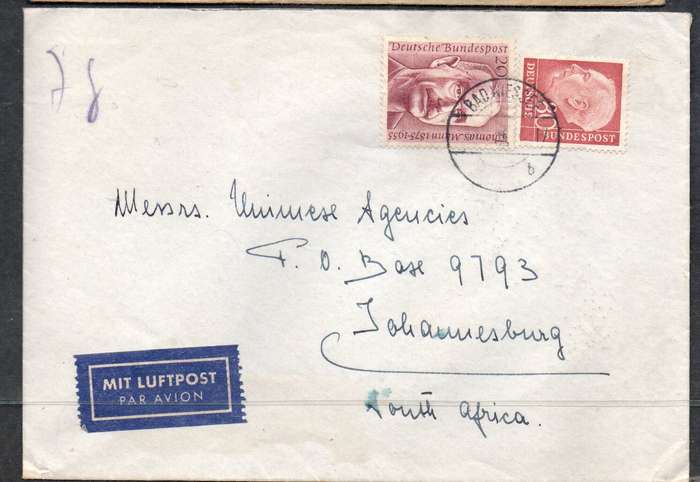 Deutsche Bundespost
20
Thomas Mann 1875-1955
DEUTSCHE
BUNDESPOST
BAD WIES
Messrs. Unimese Agencies
P. O. Base 9793
Johannesburg
South Africa.
MIT LUFTPOST
PAR AVION